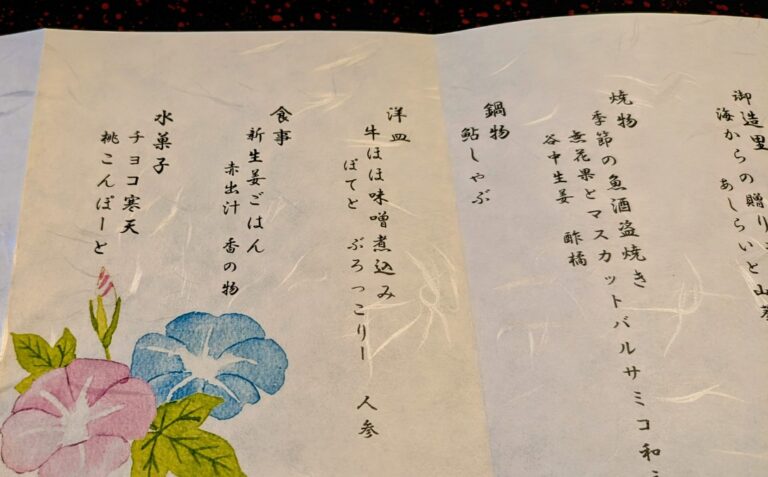 御造里
海からの贈り
あしらいと山葵
焼物
季節の魚酒盗焼き
無花果とマスカットバルサミコ和え
谷中生姜 酢橘
鍋物
鮎しゃぶ
洋皿
牛ほほ味噌煮込み
ぽてと ぶろっこりー 人参
食事
新生姜ごはん
赤出汁 香の物
水菓子
チョコ寒天
桃こんぽーと